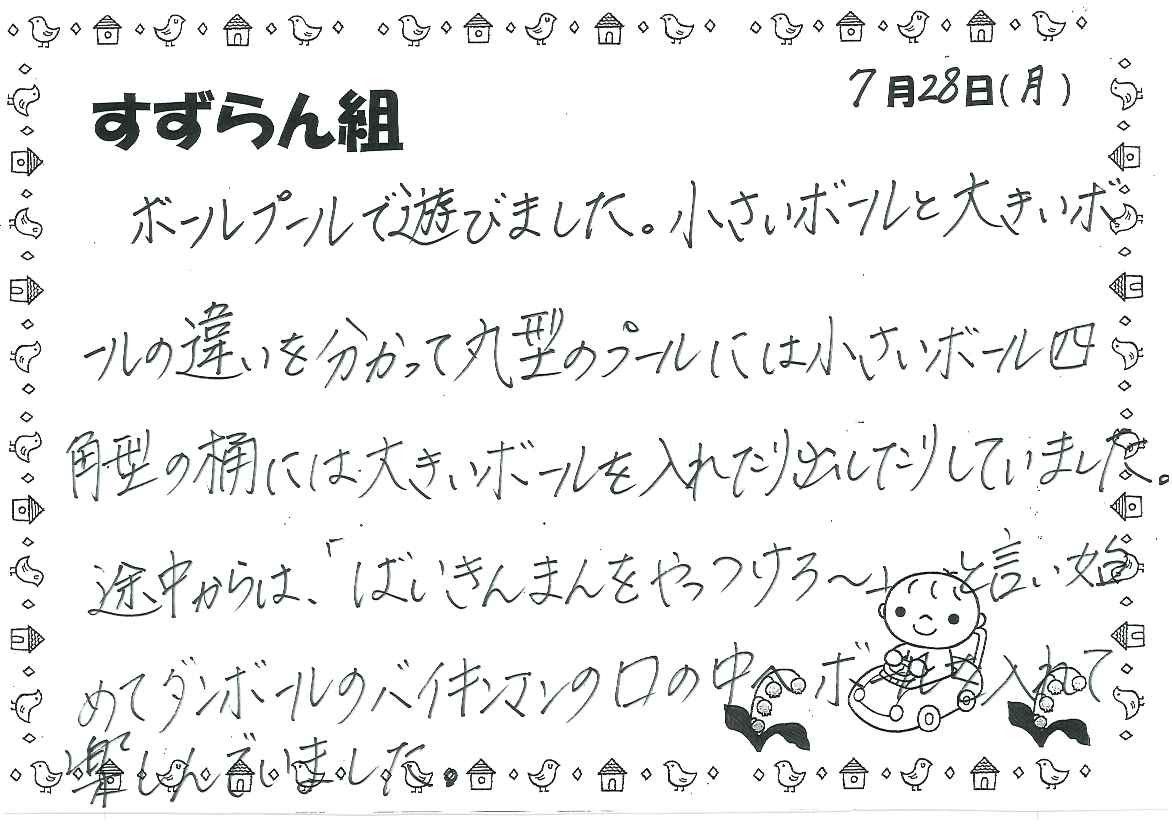 7月28日(月)
すずらん組
ボールプールで遊びました。小さいボールと大きいボ
ールの違いを分かって丸型のプールには小さいボール四
角型の桶には大きいボールを入れたり出したりしていました。
途中からは、「ばいきんまんをやっつけろ〜」と言い始
めてダンボールのバイキンマンの口の中へボールを入れて
楽しんでいました。